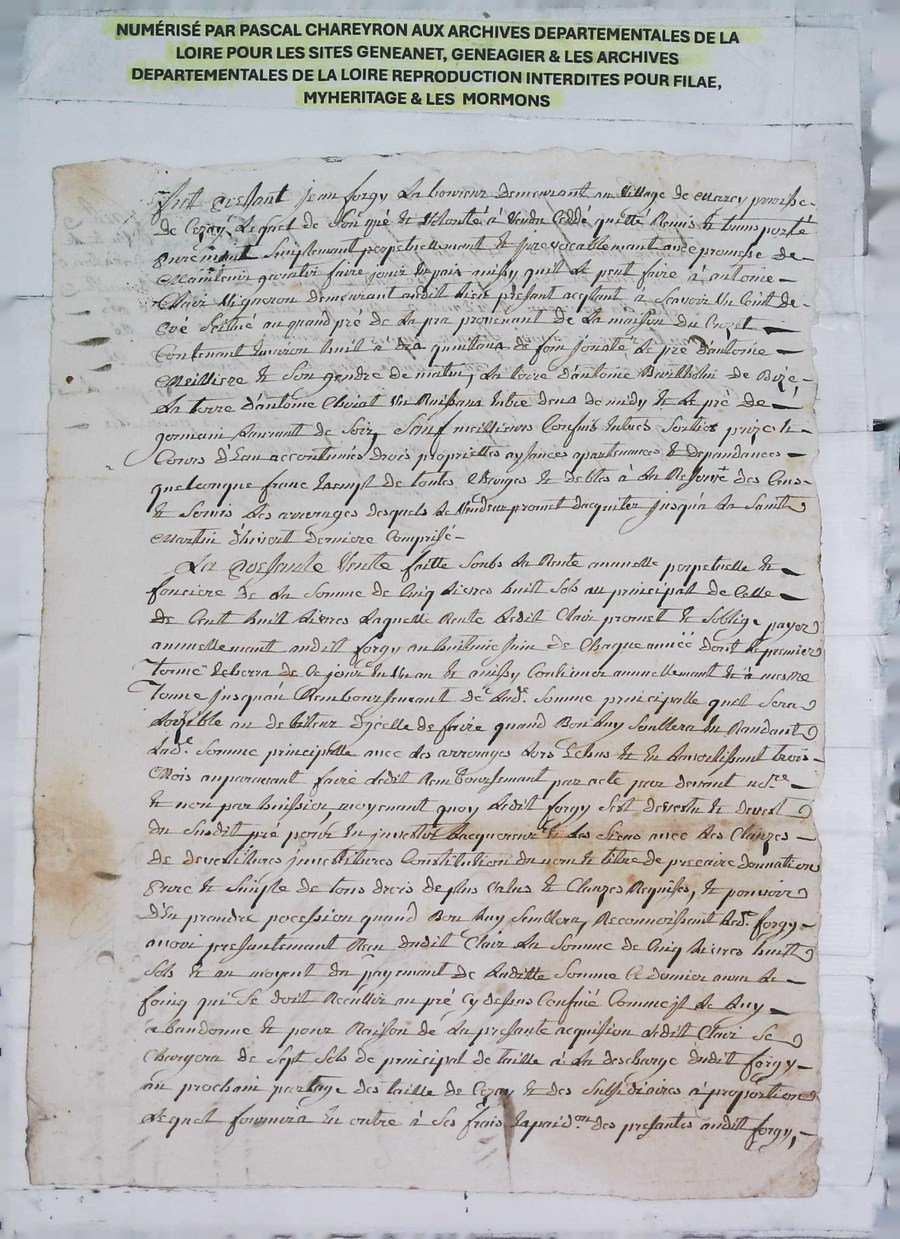 NUMÉRISÉ PAR PASCAL CHAREYRON AUX ARCHIVES DEPARTEMENTALES DE LA
LOIRE POUR LES SITES GENEANET, GENEAGIER & LES ARCHIVES
DEPARTEMENTALES DE LA LOIRE REPRODUCTION INTERDITES POUR FILAE,
MYHERITAGE & LES MORMONS
fut present jean forgy Laboureur demeurant au village de marcy parroisse
de Cezay Lequel de son gré et volonté a vendu Cedde quitté Remis et transporté
purement simplement perpetuellement et jrrevocablement avec promesse de
Maintenir garentir faire jouir et ainssy qu'il le peut faire à antoine
Clair vigneron demeurant audit lieu présant aceptant à scavoir un Coint de
pré scitué au quand pré de la pra provenant de la maison du Crozet
Contenant huit à dix quintaux de foin Le pré d'antoine
Meilliere et son gendre de matin, La terre d'antoine Barthholin de Bize,
La terre d'antoine un entre deux de midy et Le pré de
germain de soir, sauf meilleurs Confins entrées sorties prize et
Cours d'eau accoutumés drois proprietes aysances apartenances et dependances
quelconque franc Exempt de toutes Charges et debtes à La Reserve des Cens
et servis Les arrerages desquels Le vendeur promet d'aquiter jusqu'à La saint
martin d'hivert derniere Comprise
La presante vente faitte soubs La Rente annuelle perpetuelle et
fonciere de La somme de Cinq Livres huit sols au principal de Celle
de Cent huit Livres Laquelle Rente Ledit Clair promet et s'oblige payer
annuellement audit forgy au huitieme juin de Chaque année dont Le premier
terme Echerra de Ce jour En un an et ainssy Continuer annuellement et à mesme
terme jusquau Remboursement de Lade. somme principalle quel sera
au debiteur d'jcelle de faire quand Bon luy semblera En Randant
Lade. somme principalle avec des arrerages Lors Echus et En avertissant trois
Mois auparavant faire Ledit Remboursement par acte par devant nore.
et non par huissier, moyenant quoy Ledit forgy s'est devestu et devest
du susdit pré pour En jnvestir Lacquereur et Les siens avec Les Clauzes
de devestitures jnvestitures Constitution du nom et titre de precaire donnation
pure et simple de tous drois de plus value et Clauzes Requises, et pouvoir
d'en prendre pocession quand Bon luy semblera, Reconnoissant Led. forgy
avoir presantement Reçu dudit Clair La somme de Cinq Livres huit
sols et au moyent du payement de Laditte somme Ce dernier aura Le
foing qui se doit Receullir au pré Cy dessus Confiné Comme Luy
abandonne et pour Raison de La presante acquisition Ledit Clair se
Chargera de sept sols de principal de taille à La descharge dudit forgy
au prochain partage des taille de Cezay et des subsidiaires a proportion
Lequel fournira En outre à ses frais Expedon. des presantes audit forgy,